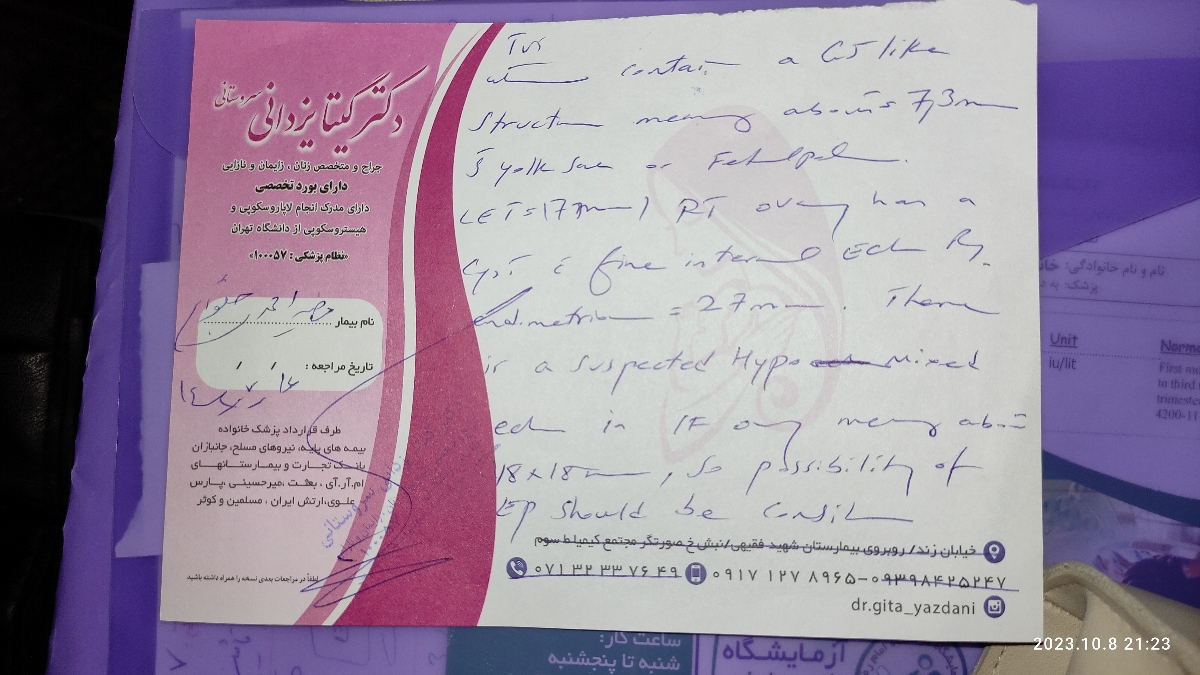 دکتر گیتا یزدانی سروستانی
جراح و متخصص زنان ، زایمان و نازایی
دارای بورد تخصصی
دارای مدرک انجام لاپاروسکوپی و
هیستروسکوپی از دانشگاه تهران
«نظام پزشکی : ۱۰۰۰۵۷»
نام بیمار
تاریخ مراجعه : / /
طرف قرارداد پزشک خانواده
بیمه های پایه، نیروهای مسلح، جانبازان
بانک تجارت و بیمارستانهای
ام.آر.آی ، بعثت ،میرحسینی ،پارس
علوی،ارتش ایران ، مسلمین و کوثر
لطفاً در مراجعات بعدی نسخه را همراه داشته باشید
TVS
contain a GS like
structure meauring about 7,3mm
yolk sac or Fetal pole.
CET=17mm) RT ovary has a
cyst c̄ fine internal Echo
endometrioma = 27mm. There
is a suspected Hypo Mixed
echo in LF ovary meauring about
18x18mm, so possibility of
EP should be consider
خیابان زند/ روبروی بیمارستان شهید فقیهی/نبش خ صورتگر مجتمع کیمیا ط سوم
۰۷۱ ۳۲ ۳۳ ۷۶ ۴۹ ۰۹۱۷ ۱۲۷ ۸۹۶۵-۰۹۳۹۸۴۲۵۲۴۷
dr.gita_yazdani
نام و نام خانوادگی:
پزشک:
Unit
iu/lit
First
to third
trimester
ساعت کار:
شنبه تا پنجشنبه
آزمایشگاه
2023.10.8 21:23